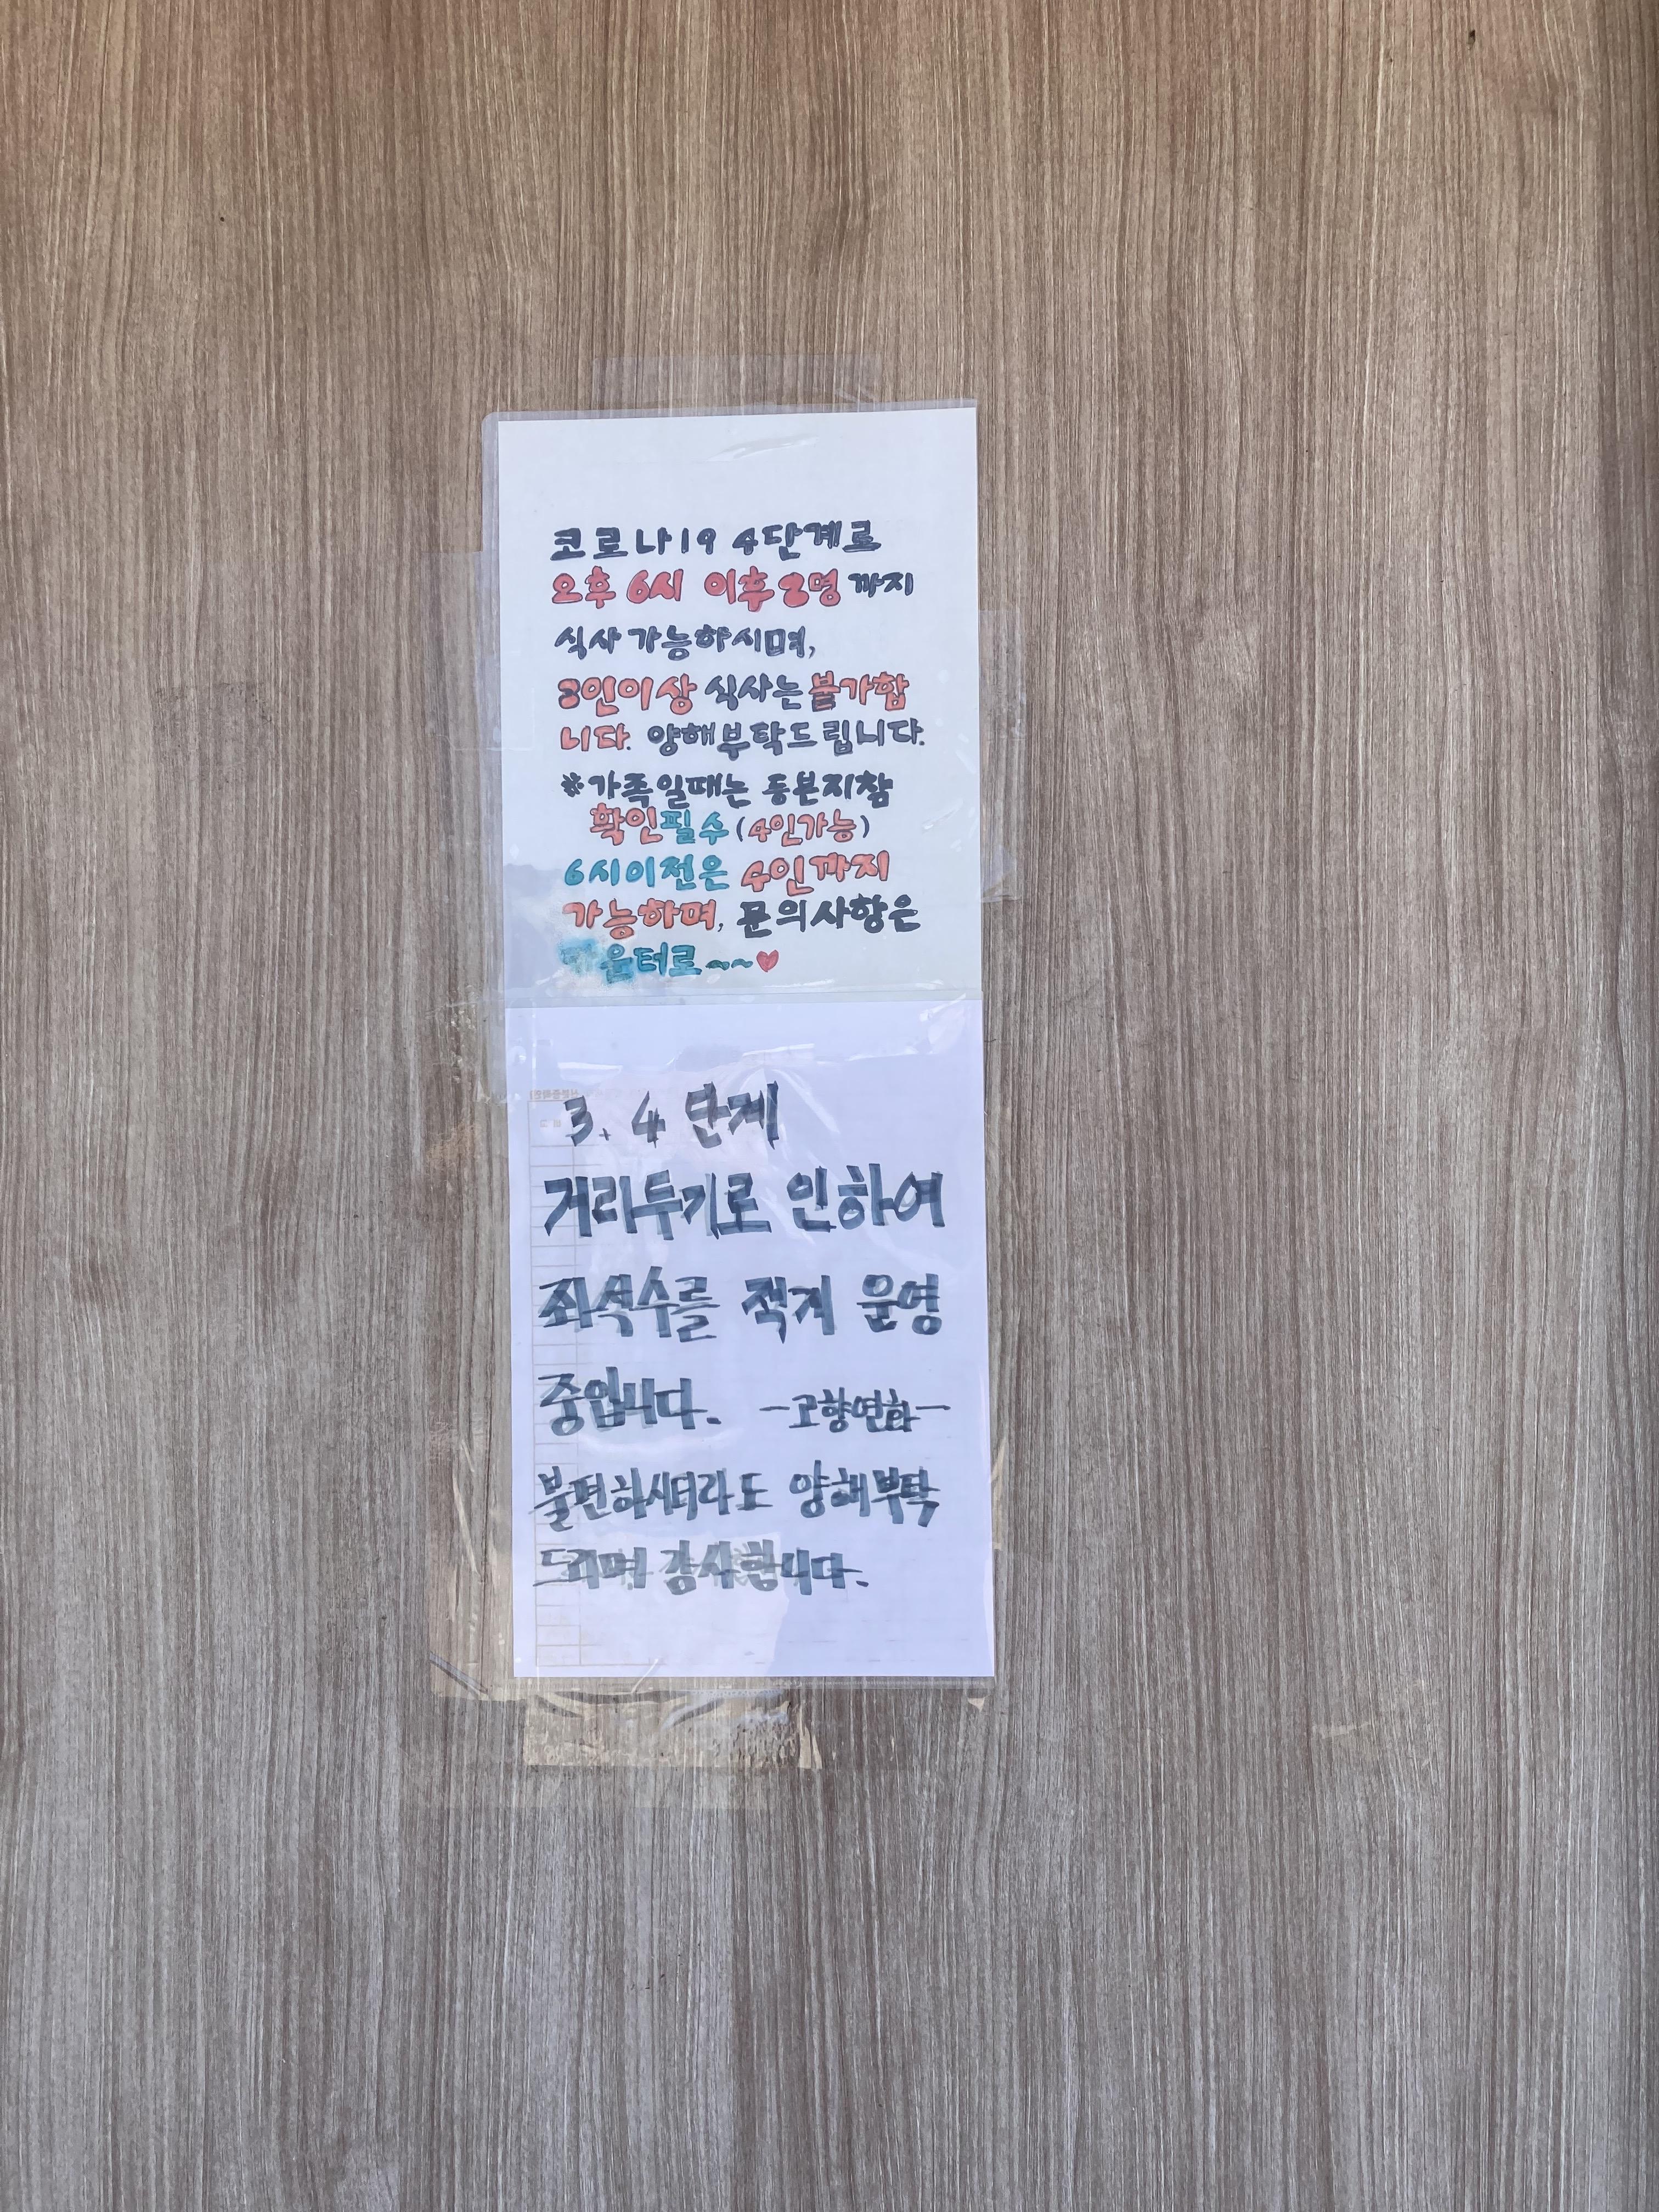 코로나19 4단계로
오후 6시 이후 2명 까지
식사 가능하시며,
3인이상 식사는 불가함
니다. 양해부탁드립니다.
※가족일때는 등본지참
확인필수 (4인가능)
6시이전은 4인까지
가능하며, 문의사항은
음터로~~♥
3. 4 단계
거리두기로 인하여
좌석수를 적게 운영
중입니다. -고향연화-
불편하시더라도 양해부탁
드리며 감사합니다.